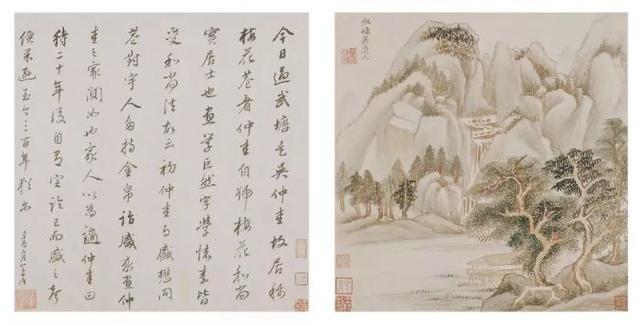 今日過武塘吳仲圭故居稱
梅花菴者仲圭自號梅花和尚
實居士也畫學巨然字學懷素皆
受和尚法故云初仲圭與盛懋同
巷對宇人多持金帛詣盛求畫仲
圭之家闃如也家人以為仲圭曰
待二十年後自有定論已而盛之
果至今三百年
二月
倣梅華道人